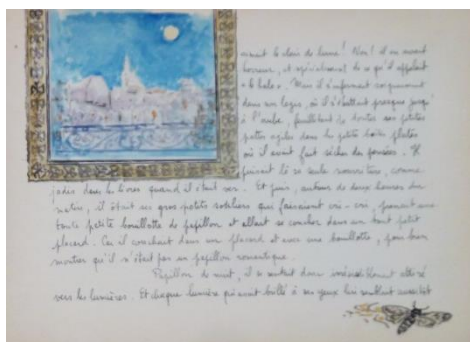 aimait le clair de lune ! Non ! il en avait
horreur, et spécialement de ce qu'il appelait
"le halo". Mais il s'enfermait
dans son logis, où il s'ébattait presque jusqu'
à l'aube, de toutes ses petites
pattes agiles dans les petites boîtes plates
où il avait fait sécher des pensées. Il
faisait là sa seule nourriture, comme
jadis dans les livres quand il était vers. Et puis, autour de deux heures du
matin, il ses gros petits souliers qui faisaient cri-cri, prenait une
toute petite bouillotte de papillon et allait se coucher dans un tout petit
placard. Car il couchait dans un placard et avec une bouillotte, pour bien
montrer qu'il n'était pas un papillon romantique.
Papillon de nuit, il se sentait donc attiré
vers les lumières. Et chaque lumière qui avait brillé à ses yeux lui semblait aussitôt